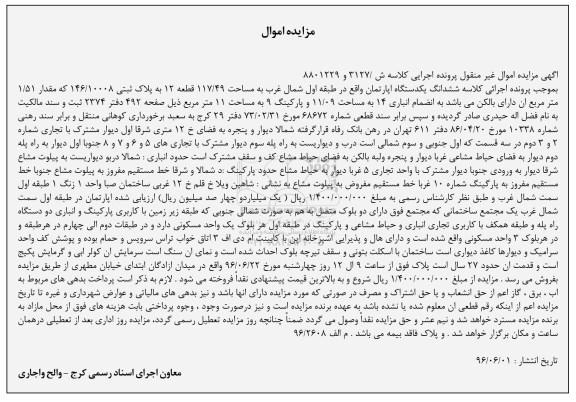 مزایده اموال
آگهی مزایده اموال غیر منقول پرونده اجرایی کلاسه ش /۳۱۲۷ و ۸۸۰۱۲۲۹
بموجب پرونده اجرائی کلاسه ششدانگ یکدستگاه اپارتمان واقع در طبقه اول شمال غرب به مساحت ۱۱۷/۴۹ قطعه ۱۲ به پلاک ثبتی ۱۴۶/۱۰۰۰۸ که مقدار ۱/۵۱
متر مربع ان دارای بالکن می باشد به انضمام انباری ۱۴ به مساحت ۱۱/۰۹ و پارکینگ ۹ به مساحت ۱۱ متر مربع ذیل صفحه ۴۹۲ دفتر ۲۳۷۴ ثبت و سند مالکیت
به نام فضل اله حیدری صادر گردیده و سپس برابر سند قطعی شماره ۶۸۶۷۲ مورخ ۷۳/۰۲/۳۱ دفتر ۲۹ کرج به سعید برخورداری کوهانی منتقل و برابر سند رهنی
شماره ۱۰۳۳۸ مورخ ۸۶/۰۴/۲۰ دفتر ۶۱۱ تهران در رهن بانک رفاه قرارگرفته شمالا دیوار و پنجره به فضای خ ۱۲ متری شرقا اول دیوار مشترک با تجاری شماره
۲ و ۳ دوم در سه قسمت که اول جنوبی و سوم شمالی است درب و دیواریست به راه پله سوم دیوار مشترک با تجاری های ۵ و ۶ و ۷ و ۸ جنوبا اول دیوار به راه پله
دوم دیوار به فضای حیاط مشاعی غربا دیوار و پنجره ولبه بالکن به فضای حیاط مشاع کف و سقف مشترک است حدود انباری : شمالا دربو دیواریست به پیلوت مشاع
شرقا دیوار به ورودی جنوبا دیوار مشترک با واحد تجاری ۵ غربا دیوار به حیاط مشاع حدود پارکینگ :د شمالا و شرقا خط مستقیم مفروز به پیلوت مشاع جنوبا خط
مستقیم مفروز به پارکینگ شماره ۱۰ غربا خط مستقیم مفروض به پیلوت مشاع به نشانی : شاهین ویلا خ قلم خ ۱۲ غربی ساختمان صبا واحد ۱ زنگ ۱ طبقه اول
سمت شمال غرب و طبق نظر کارشناس رسمی به مبلغ ۱/۴۰۰/۰۰۰/۰۰۰ ریال ( یک میلیاردو چهار صد میلیون ریال) ارزیابی شده اپارتمان در طبقه اول سمت
شمال غرب یک مجتمع ساختمانی که مجتمع فوق دارای دو بلوک متصل به هم به صورت شمالی جنوبی که طبقه زیر زمین با کاربری پارکینگ و انباری دو دستگاه
راه پله و طبقه همکف با کاربری تجاری انباری و حیاط مشاعی و پارکینگ در طبقه اول هر بلوک یک واحد مسکونی دارد و در طبقات دوم الی چهارم در هرطبقه و
در هربلوک ۳ واحد مسکونی واقع شده است و دارای هال و پذیرایی اشپزخانه اپن با کابینت ام دی اف ۳ اتاق خواب تراس سرویس و حمام بوده و پوشش کف واحد
سرامیک و دیوارها کاغذ دیواری است ساختمان با اسکلت بتونی و سقف تیرچه بلوک احداث شده است و نمای ان سنگ است سرمایش ان کولر ابی و گرمایش پکیج
است و قدمت ان حدود ۲۷ سال است پلاک فوق از ساعت ۹ ال ۱۲ روز چهارشنبه مورخ ۹۶/۰۶/۲۲ واقع در میدان ازادگان ابتدای خیابان مطهری از طریق مزایده
بفروش می رسد . مزایده از مبلغ ۱/۴۰۰/۰۰۰/۰۰۰ ریال شروع و به بالاترین قیمت پیشنهادی نقدا فروخته می شود . لازم به ذکر است پرداخت بدهی های مربوط به
اب ، برق ، گاز اعم از حق انشعاب و یا حق اشتراک و مصرف در صورتی که مورد مزایده دارای انها باشد و نیز بدهی های مالیاتی و عوارض شهرداری و غیره تا تاریخ
مزایده اعم از اینکه رقم قطعی ان معلوم شده یا نشده باشد به عهده برنده مزایده است و نیز درصورت وجود ، وجوه پرداختی بابت هزینه های فوق از محل مازاد به
برنده مزایده مسترد خواهد شد و نیم عشر و حق مزایده نقدا وصول می گردد ضمنا چنانچه روز مزایده تعطیل رسمی گردد، مزایده روز اداری بعد از تعطیلی درهمان
ساعت و مکان برگزار خواهد شد . و پلاک فاقد بیمه می باشد . م الف ۹۶/۲۶۰۸
تاریخ انتشار : ۹۶/۰۶/۰۱
معاون اجرای اسناد رسمی کرج – والح واجاری